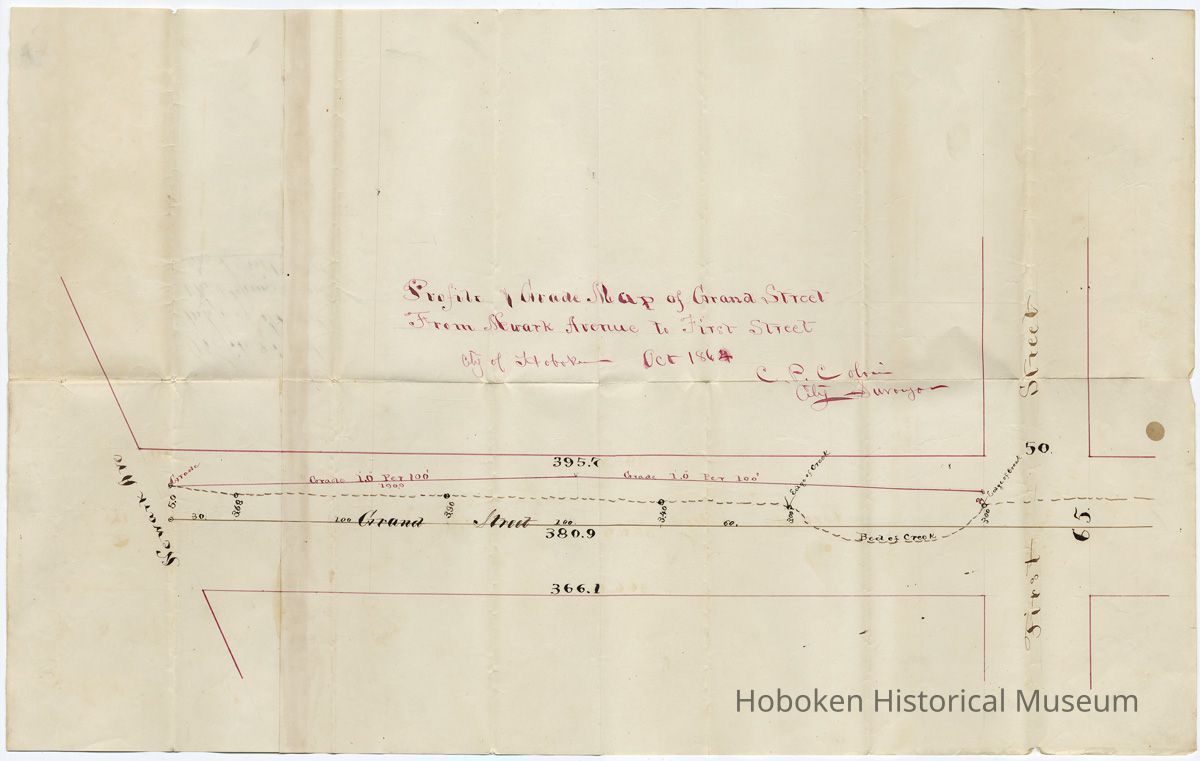 Profile & Grade Map of Grand Street
From Newark Avenue to First Street
City of Hoboken Oct 1864
City Surveyor
Newark Ave
Street
50.
395.7
Grade
Grade 1.0 Per 100'
Grade 1.0 Per 100'
Edge of Creek
Edge of Creek
5.0
30.
100
Grand Street
100.
60.
380.9
Bed of Creek
65
366.1
First
Hoboken Historical Museum